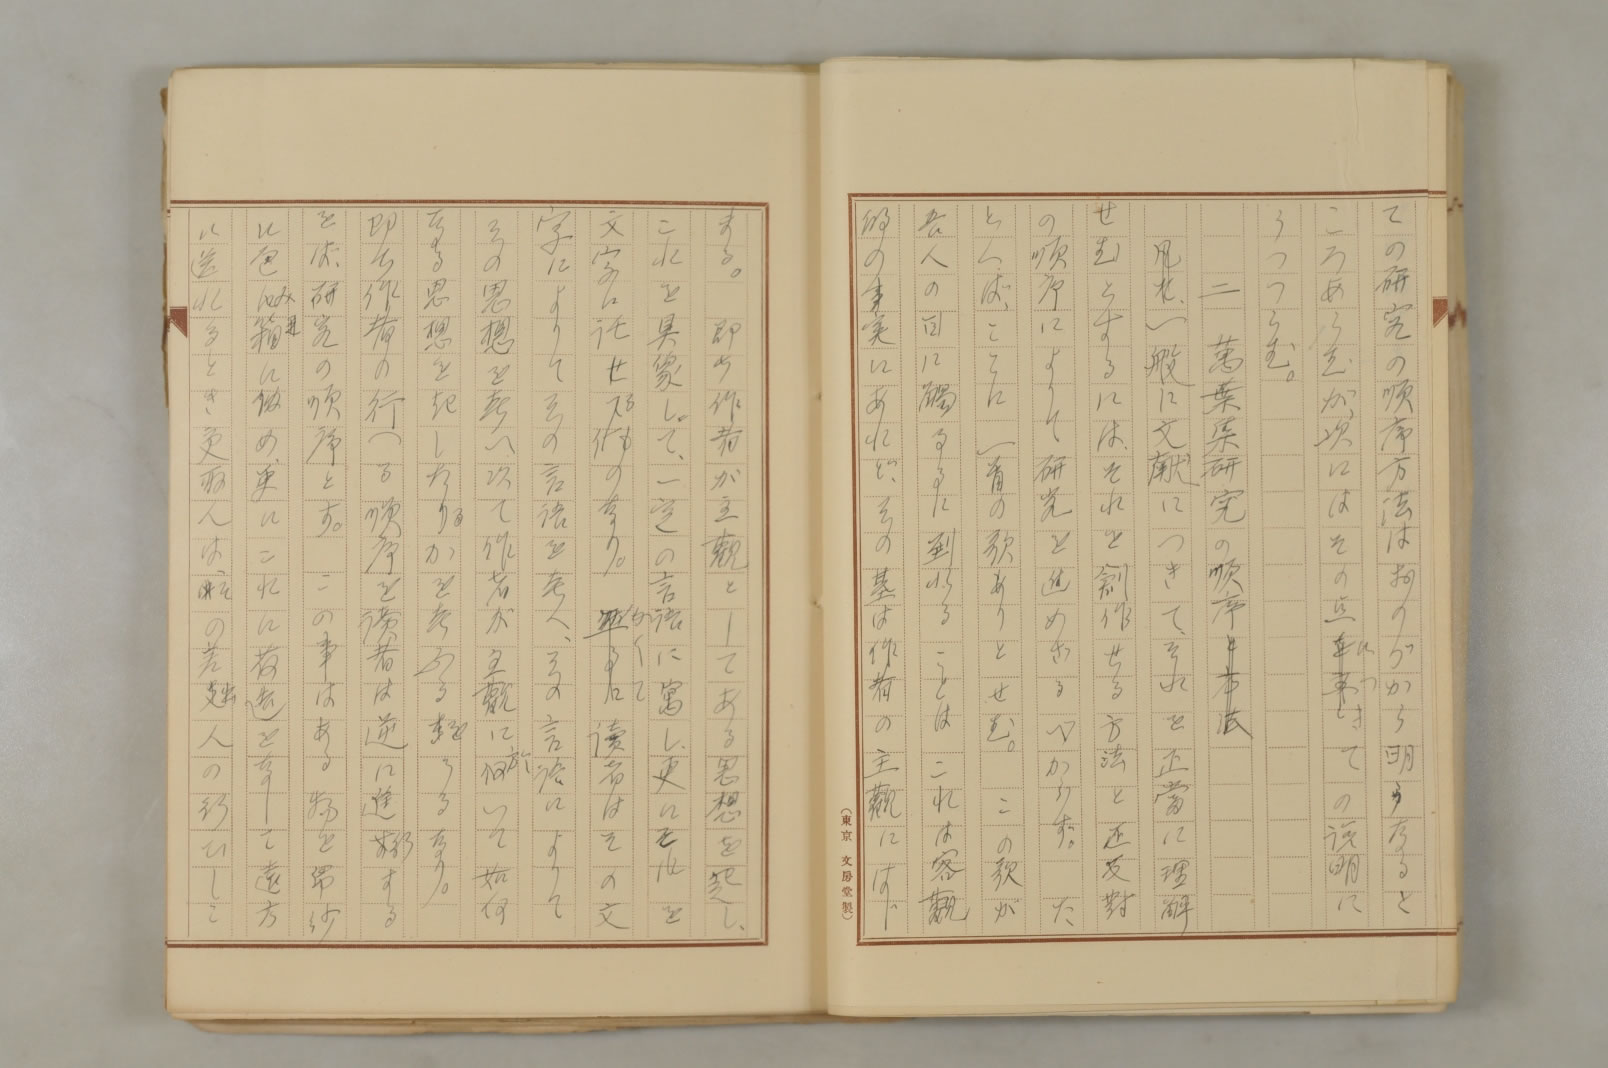 ての研究の順序方法はおのづから明うなると
ころあらむが、次にはその点につきての説明に
うつつらむ。
二　萬葉集研究の順序と方法
凡そ、一般に文献につきて、それを正當に理解
せむとするには、それを創作せる方法と正反對
の順序によりて研究を進めざるべからず。た
とへば、ここに一首の歌ありとせむ。この歌が
吾人の目に觸るるに到れることは、これは客觀
的の事実にあれど、その基は作者の主觀にはじ
まる。即ち作者が主觀としてある思想を起し、
これを具象して、一定の言語に寓し、更にそれを
文字に託せるものなり。かくて讀者はその文
字によりてその言語を考へ、その言語によりて
その思想を考へ、次て作者が主觀に於いて如何
なる思想を起したるかを考ふるを得るなり。
即ち作者の行へる順序を讀者は逆に進行する
をば、研究の順序とす。この事はある物を帛紗
に包み、箱に斂め、更にこれに荷造を**なして遠方
に送れるとき、受取人は、荷の差出人の行ひしこ
（東京　文房堂製）